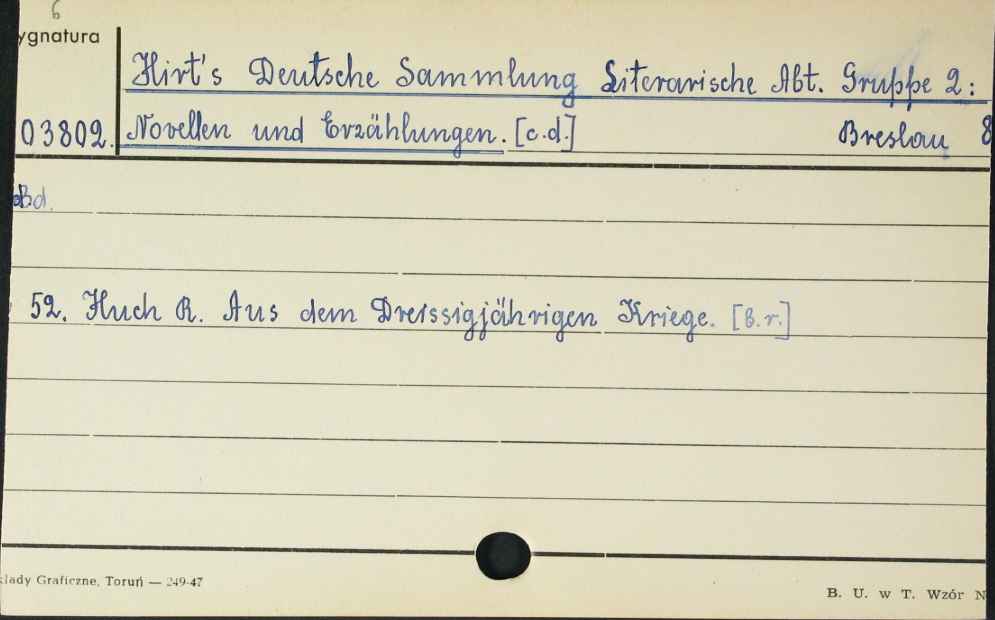 6
ygnatura
Hirt's Deutsche Sammlung Literarische Abt. Gruppe 2:
03802. Novellen und Erzählungen. [c.d.] Breslau 8
Bd.
52. Huch R. Aus dem Dreissigjährigen Kriege. [B.r.]
klady Graficzne, Toruń — 249-47
B. U. w T. Wzór N